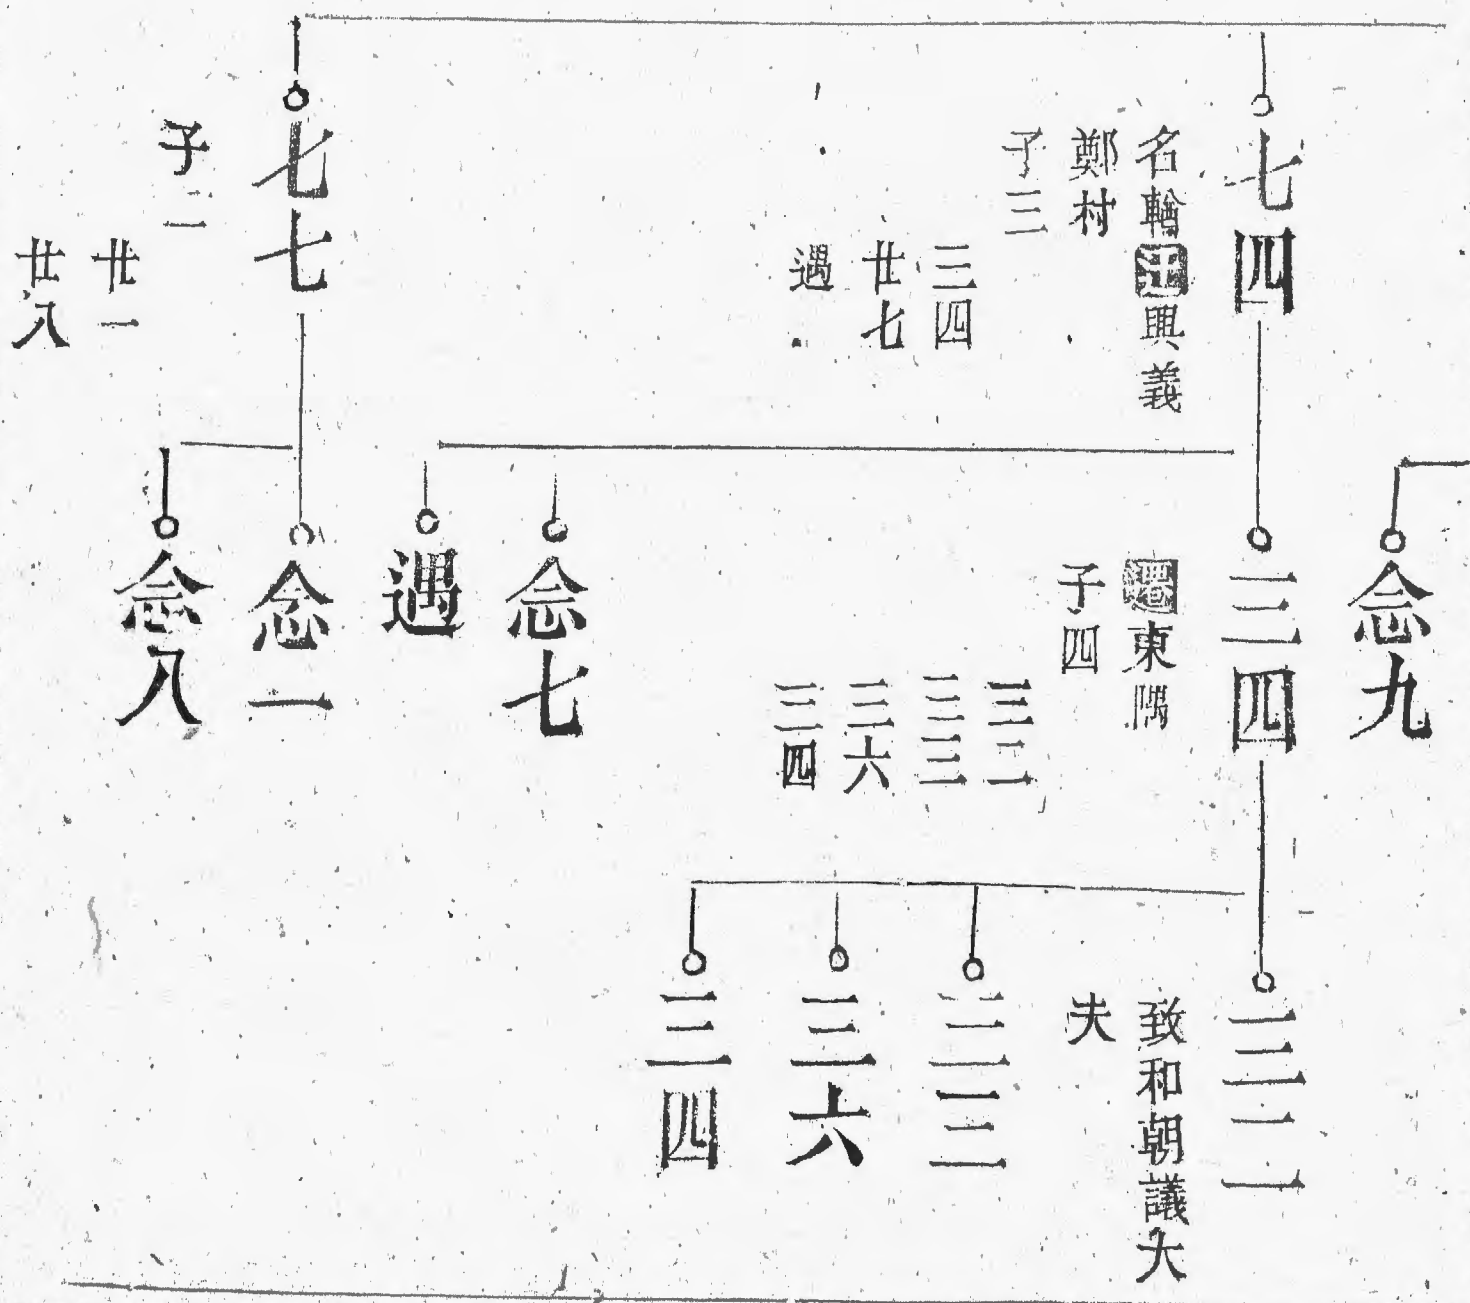 七四
名輪王興義
鄭村
子三
三四
廿七
遇
七七
子二
廿一
廿八
念九
三四
遷東隅
子四
三二
三三
三六
三四
念七
遇
念一
念八
三二
致和朝議大
夫
三三
三六
三四